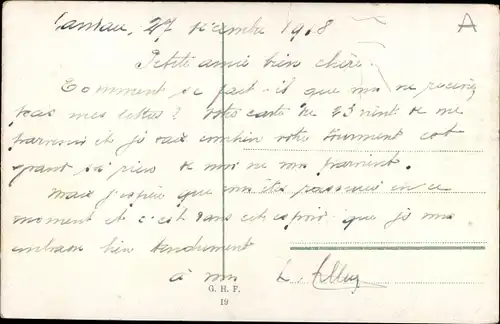 Landau, 27 décembre 1918
A
Petite amie bien chère.
Comment se fait-il que vous ne receviez
pas mes lettres ? Votre carte du 23 vient de me
parvenir et je sais combien votre tourment est
grand si rien de moi ne vous parvient.
Mais j'espère que vous êtes rassurée en ce
moment et c'est dans cet espoir que je vous
embrasse bien tendrement
à vous L.
G. H. F.
19